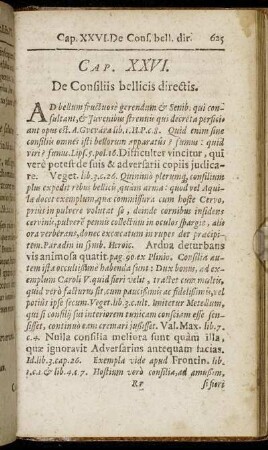 Cap. XXVI. De Conf. bell. dir. 625
CAP. XXVI.
De Consiliis bellicis directis.
AD bellum fructuose gerendum & Senib. qui con-
sultant, & Juvenibus strenuis qui decreta perficiãt
ant opus est. A Guevara lib. 1. H.P.c.8. Quid enim sine
consilio omnes isti bellorum apparatus? fumus: quid
viri? fumus. Lips. 5. pol. 16. Difficulter vincitur, qui
verè potest de suis & adversarii copiis judica-
re. Veget. lib. 3. c. 26. Quinimò plerunq; consilium
plus expedit ribus bellicis, quàm arma: quod vel Aqui-
la docet exemplum, quæ commissura cum hoste Cervo,
priùs in pulvere volutat se, deinde cornibus insidens
cervinis, pulverē pennis collectum in oculos spargit: ali-
ora verberans, donec excæcatum in rupes det præcipi-
tem. Paradin in symb. Heroic. Ardua deturbans
vis animosa quatit. pag. 90 ex Plinio. Consilia au-
tem ista occultissimè habenda sunt: Dux bonus, ad ex-
emplum Caroli V. quid fieri velit, tractet cum multis,
quid verò facturus sit, cum paucissimis ac fidelissimis, vel
potius ipse secum. Veget. lib. 3. c. ult. Imitetur Metellum,
qui si consilii sui interiorem tunicam consciam esse sen-
sisset, continuò eam cremari jussisset. Val. Max. lib. 7.
c. 4. Nulla consilia meliora sunt quàm illa,
quæ ignoravit Adversarius antequam facias.
Id. lib. 3. cap. 26. Exempla vide apud Frontin. lib.
1. c. 1 & lib. 4. c. 7. Hostium verò consilia, ad amussim,
Rr si fieri